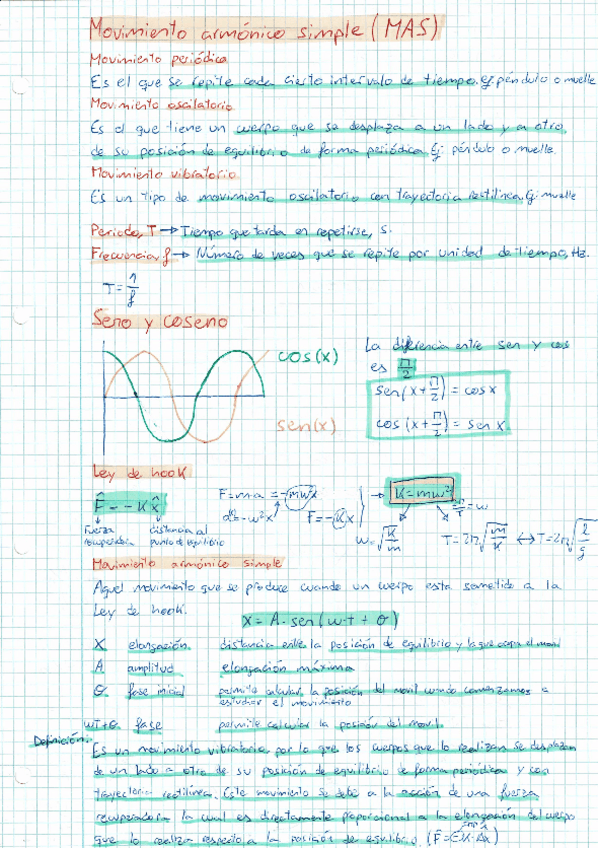 Movimiento armónico simple (MAS)
Movimiento periódico
Es el que se repite cada cierto intervalo de tiempo. Ej: péndulo o muelle
Movimiento oscilatorio
Es el que tiene un cuerpo que se desplaza a un lado y a otro
de su posición de equilibrio de forma periódica. Ej: péndulo o muelle.
Movimiento vibratorio
Es un tipo de movimiento oscilatorio con trayectoria restilínea. Ej: muelle
Periodo, T → Tiempo que tarda en repetirse, s.
Frecuencia, f → Número de veces que se repite por unidad de tiempo, Hz.
T = 1/f
Seno y coseno
cos(x)
sen(x)
La diferencia entre sen y cos
es π/2
sen(x+π/2) = cos x
cos(x+π/2) = sen x
Ley de hook
F = - K x
Fuerza recuperadora
distancia al punto de equilibrio
F = m·a = -mw²x
F = -Kx
K = mw²
2π/T = w
w = √K/m
T = 2π√m/K ↔ T = 2π√l/g
Movimiento armónico simple
Aquel movimiento que se produce cuando un cuerpo esta sometido a la
Ley de hook.
x = A · sen(w·t + θ)
X elongación distancia entre la posición de equilibrio y la que ocupa el movil
A amplitud elongación máxima
θ fase inicial permite calcular la posición del movil cuando comenzamos a
estudiar el movimiento
wT+θ fase permite calcular la posición del movil.
Definición:
Es un movimiento vibratorio, por lo que los cuerpos que lo realizan se desplazan
de un lado a otro de su posición de equilibrio de forma periódica y con
trayectoria rectilínea. Este movimiento se debe a la acción de una fuerza
recuperadora la cual es directamente proporcional a la elongación del cuerpo
que lo realiza respecto a la posición de equilibrio. (F = -K·Δx)